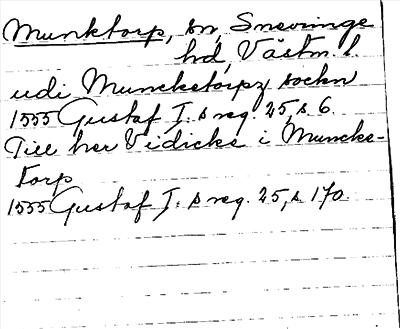 Munktorp, sn, Snevringe
hd, Västm. l.
udi Muncketorpz sockn
1555 Gustaf I:s reg. 25, s 6.
Till her Vidicke i Muncke-
torp
1555 Gustaf I:s reg. 25, s 170